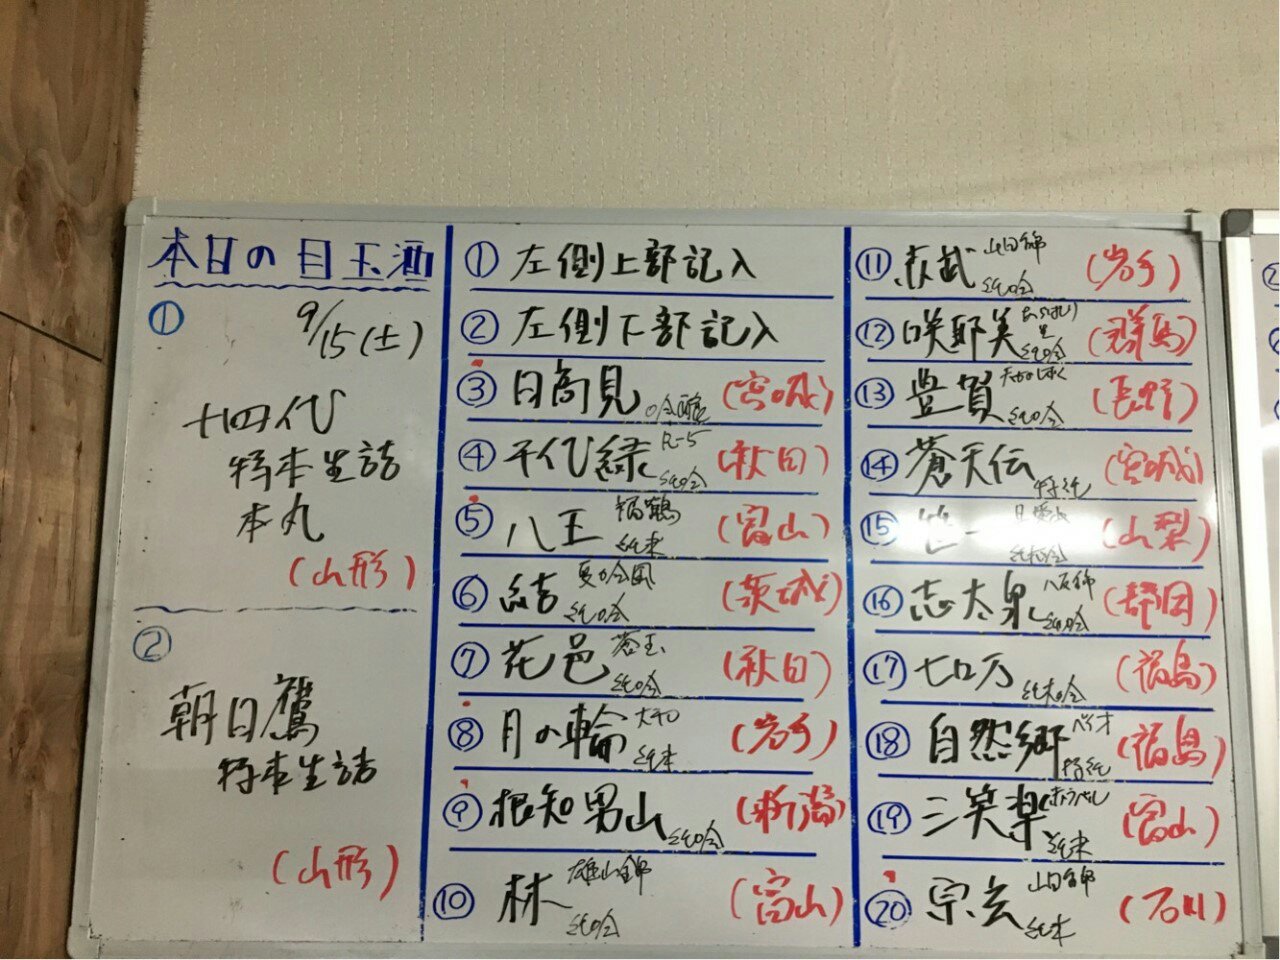 本日の目玉酒
①
9/15(土)
十四代
特本生詰
本丸
(山形)
②
朝日鷹
特本生詰
(山形)
① 左側上部記入
② 左側下部記入
③ 日高見 (宮城)
④ 千代緑 R-5 純吟 (秋田)
⑤ 八王 福鶴 純米 (富山)
⑥ 結 純吟 (茨城)
⑦ 花邑 蒼玉 純吟 (秋田)
⑧ 月の輪 純米 (岩手)
⑨ 根知男山 純吟 (新潟)
⑩ 林 雄山錦 純吟 (富山)
⑪ 赤武 山田錦 純吟 (岩手)
⑫ 咲耶美 純吟 (群馬)
⑬ 豊賀 純吟 (長野)
⑭ 蒼天伝 特純 (宮城)
⑮ 笹一 純米吟 (山梨)
⑯ 志太泉 八反錦 純吟 (静岡)
⑰ 七ロ万 純米吟 (福島)
⑱ 自然郷 特純 (福島)
⑲ 三笑楽 赤ラベル 純米 (富山)
⑳ 宗玄 山田錦 純米 (石川)